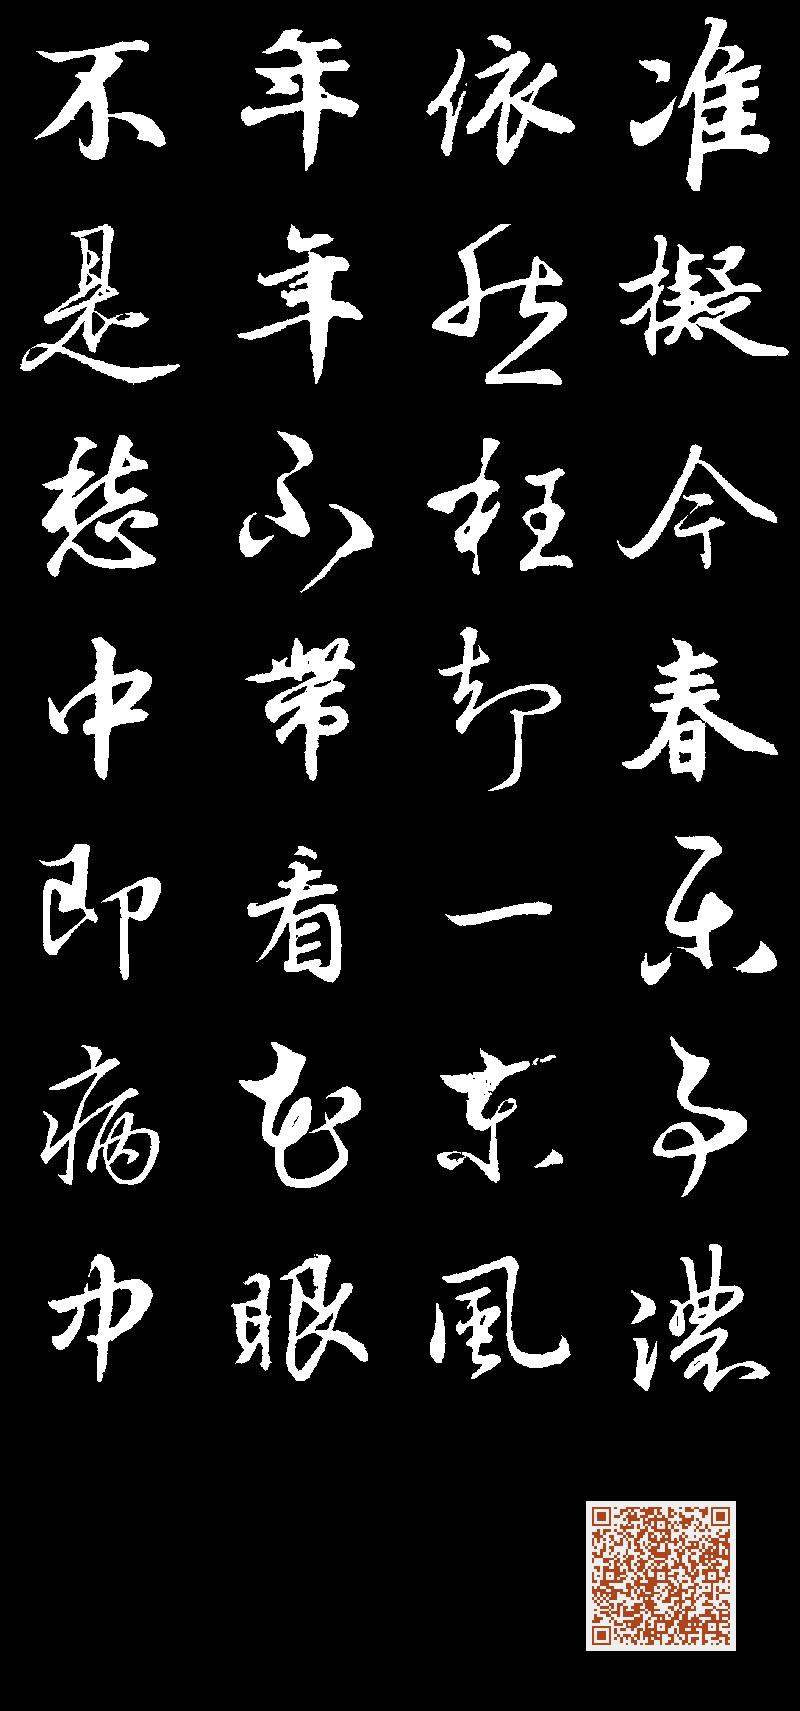 准擬今春乐事濃
依然枉却一東風
年年不帶看花眼
不是愁中即病中